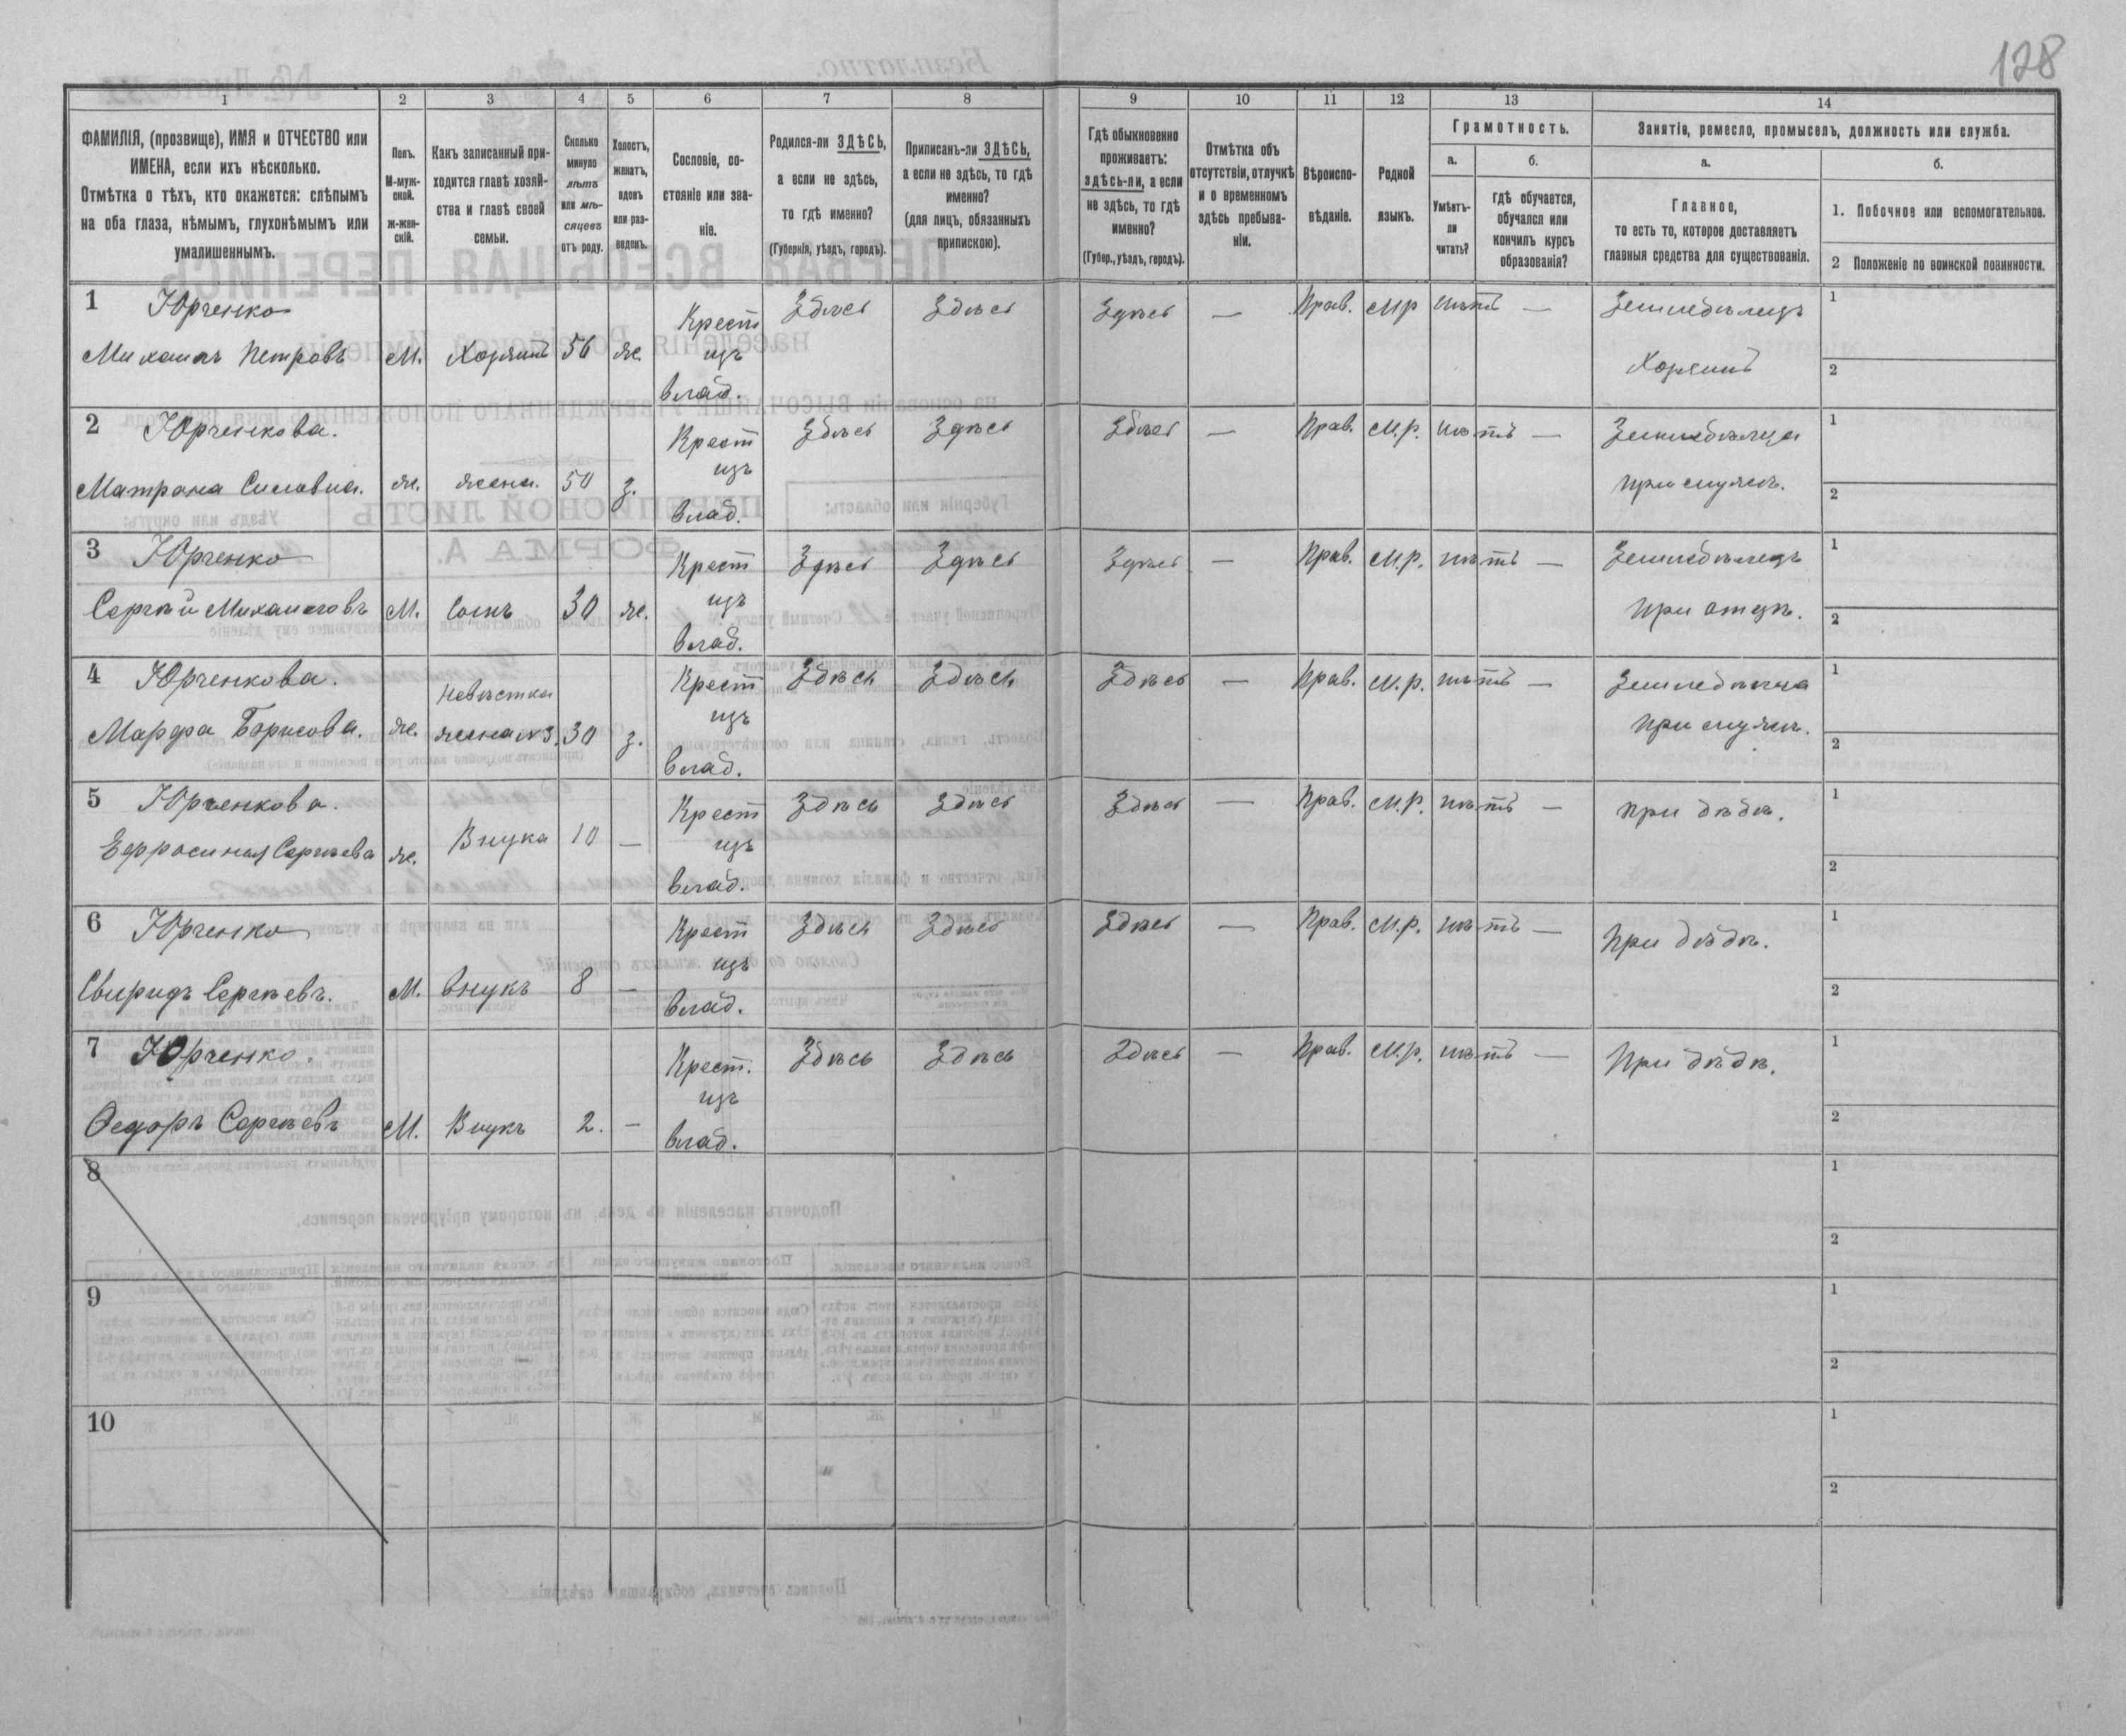 128
1
2
3
4
5
6
7
8
9
10
11
12
13
14
ФАМИЛІЯ, (прозвище), ИМЯ и ОТЧЕСТВО или
ИМЕНА, если ихъ нѣсколько.
Отмѣтка о тѣхъ, кто окажется: слѣпымъ
на оба глаза, нѣмымъ, глухонѣмымъ или
умалишеннымъ.
Полъ.
М-муж-
ской.
ж-жен-
скій.
Какъ записанный при-
ходится главѣ хозяй-
ства и главѣ своей
семьи.
Сколько
минуло
лѣтъ
или мѣ-
сяцевъ
отъ роду.
Холостъ,
женатъ,
вдовъ
или раз-
веденъ.
Сословіе, со-
стояніе или зва-
ніе.
Родился-ли ЗДѢСЬ,
а если не здѣсь,
то гдѣ именно?
(Губернія, уѣздъ, городъ).
Приписанъ-ли ЗДѢСЬ,
а если не здѣсь, то гдѣ
именно?
(для лицъ, обязанныхъ
припискою).
Гдѣ обыкновенно
проживаетъ:
здѣсь-ли, а если
не здѣсь, то гдѣ
именно?
(Губер., уѣздъ, городъ).
Отмѣтка объ
отсутствіи, отлучкѣ
и о временномъ
здѣсь пребыва-
ніи.
Вѣроиспо-
вѣданіе.
Родной
языкъ.
Грамотность.
а.
Умѣетъ-
ли
читать?
б.
гдѣ обучается,
обучался или
кончилъ курсъ
образованія?
Занятіе, ремесло, промыселъ, должность или служба.
а.
Главное,
то есть то, которое доставляетъ
главныя средства для существованія.
б.
1. Побочное или вспомогательное.
2 Положеніе по воинской повинности.
1 Юрченко
Михаилъ Петровъ
М. Хозяинъ 56 же.
Крест
изъ
влад.
Здѣсь Здѣсь Здѣсь — Прав. М.р нѣтъ —
Земледѣлецъ
Хозяинъ
1
2
2 Юрченкова.
Матрона Силовна.
же. жена. 50 з.
Крест
изъ
влад.
Здѣсь Здѣсь Здѣсь — Прав. М.р. нѣтъ —
при мужѣ.
1
2
3 Юрченко
Сергѣй Михаиловъ
М. Сынъ 30 же.
Крест
изъ
влад.
Здѣсь Здѣсь Здѣсь — Прав. М.р. нѣтъ —
Земледѣлецъ
при отцѣ.
1
2
4 Юрченкова.
Марфа Борисова.
же.
Невѣстка
жена №3. 30 з.
Крест
изъ
влад.
Здѣсь Здѣсь Здѣсь — Прав. М.р. нѣтъ —
при мужѣ.
1
2
5 Юрченкова.
Ефросинія Сергѣева
же. Внука 10 —
Крест
изъ
влад.
Здѣсь Здѣсь Здѣсь — Прав. М.р. нѣтъ —
при дѣдѣ.
1
2
6 Юрченко
Свиридъ Сергѣевъ.
М. внукъ 8 —
Крест
изъ
влад.
Здѣсь Здѣсь Здѣсь — Прав. М.р. нѣтъ —
при дѣдѣ.
1
2
7 Юрченко.
Ѳедоръ Сергѣевъ
М. Внукъ 2. —
Крест.
изъ
влад.
Здѣсь Здѣсь Здѣсь — Прав. М.р. нѣтъ —
при дѣдѣ.
1
2
8
1
2
9
1
2
10
1
2